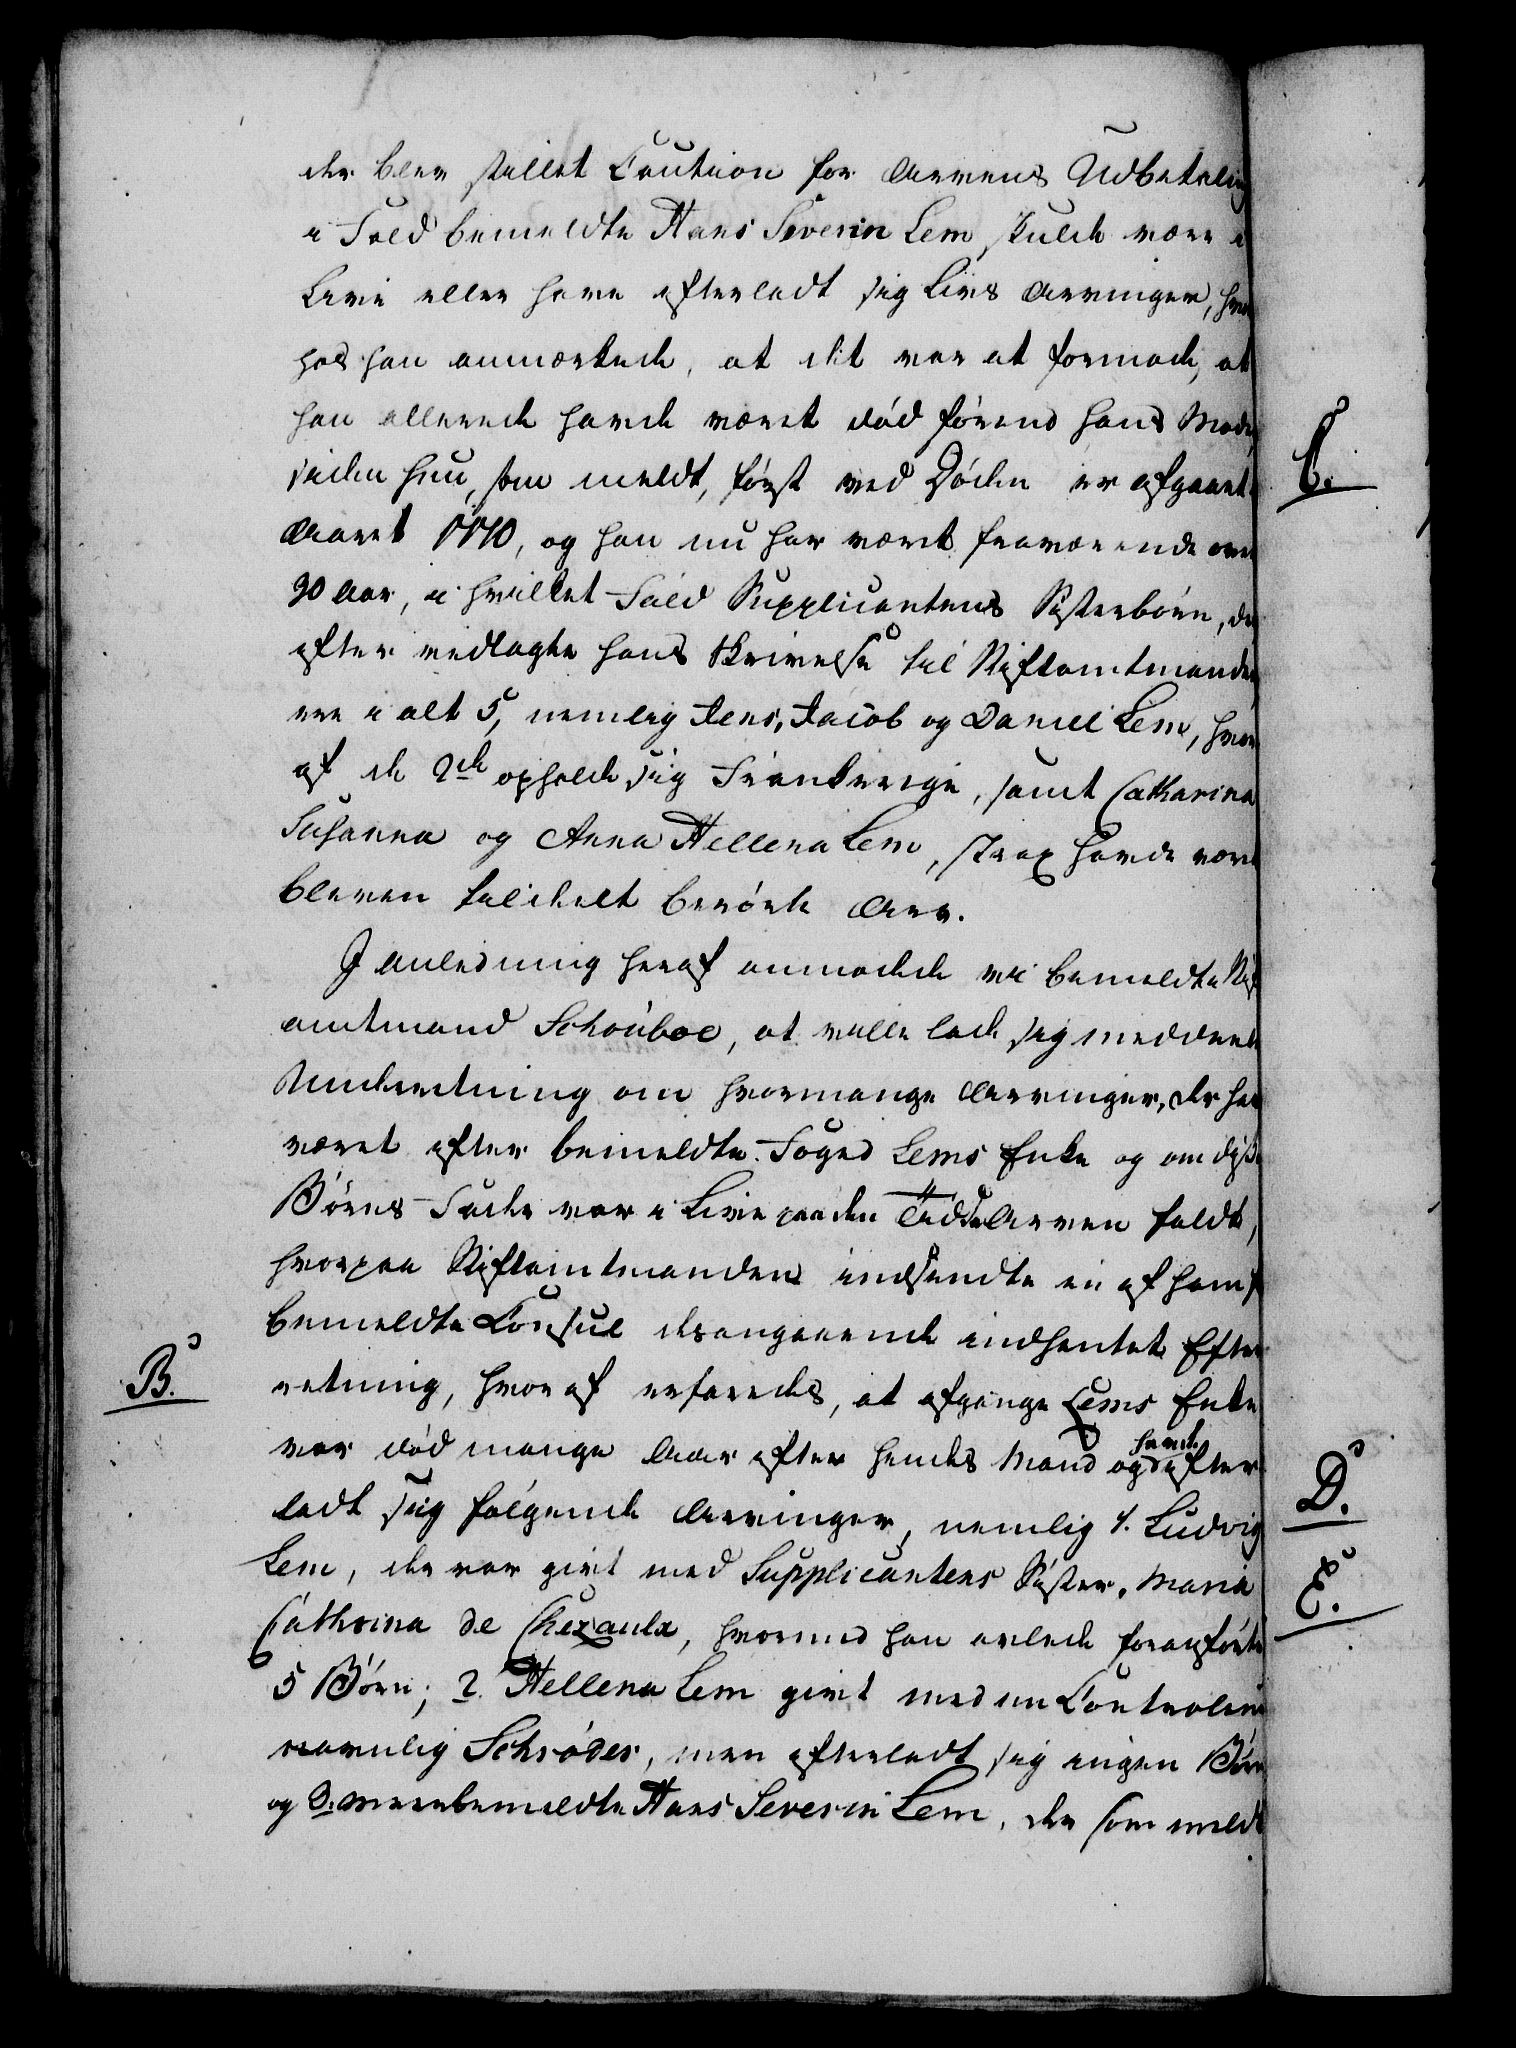 der blev stillet Caution for Arvens Udbetaling
i Fald bemeldte Hans Severin Lem skulde være i
Live eller have efterladt sig Livs Arvinger, hvor
hos han anmærkede, at det var at formode, at
han allerede havde været död förend hans Moder,
siden hun, som meldt, först ved Döden er afgaaet
Aaret 1770, og han nu har været fraværende over
30 Aar, i hvilket Fald Supplicantens Sösterbörn, der
efter vedlagte hans Skrivelse til Stiftamtmanden
ere i alt 5, nemlig Jens, Jacob og Daniel Lem, hvor
af de 2de opholde sig Frankerige, samt Catharina
Susanna og Anna Hellena Lem, strax havde været
bleven tildeelt berörte Arv.
I Anledning heraf anmodede vi bemeldte Stift
amtmand Schouboe, at ville lade sig meddeele
Underretning om hvormange Arvinger, der har
været efter bemeldte Foged Lems Enke og om disse
Börns Fader var i Live paa den Tiid da Arven faldt,
hvorpaa Stiftamtmanden indsendte en af ham fra
bemeldte Consul desangaaende indhentet Efter
B.
retning, hvoraf erfaredes, at afgangne Lems Enke
var död mange Aar efter hendes Mand og havde efter
ladt sig fölgende Arvinger, nemlig 1. Ludvig
Lem, der var givt med Supplicantens Söster, Maria
Cathrina de Chezaulx, hvormed han avlede foranförte
5 Börn; 2. Hellena Lem givt med en Controleur
navnlig Schröder, men efterladt sig ingen Börn
og 3. meerbemeldte Hans Severin Lem, der som meldt
C.
D.
E.